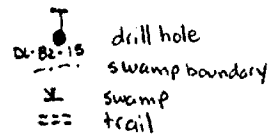 DL-82-15 drill hole
swamp boundary
swamp
trail